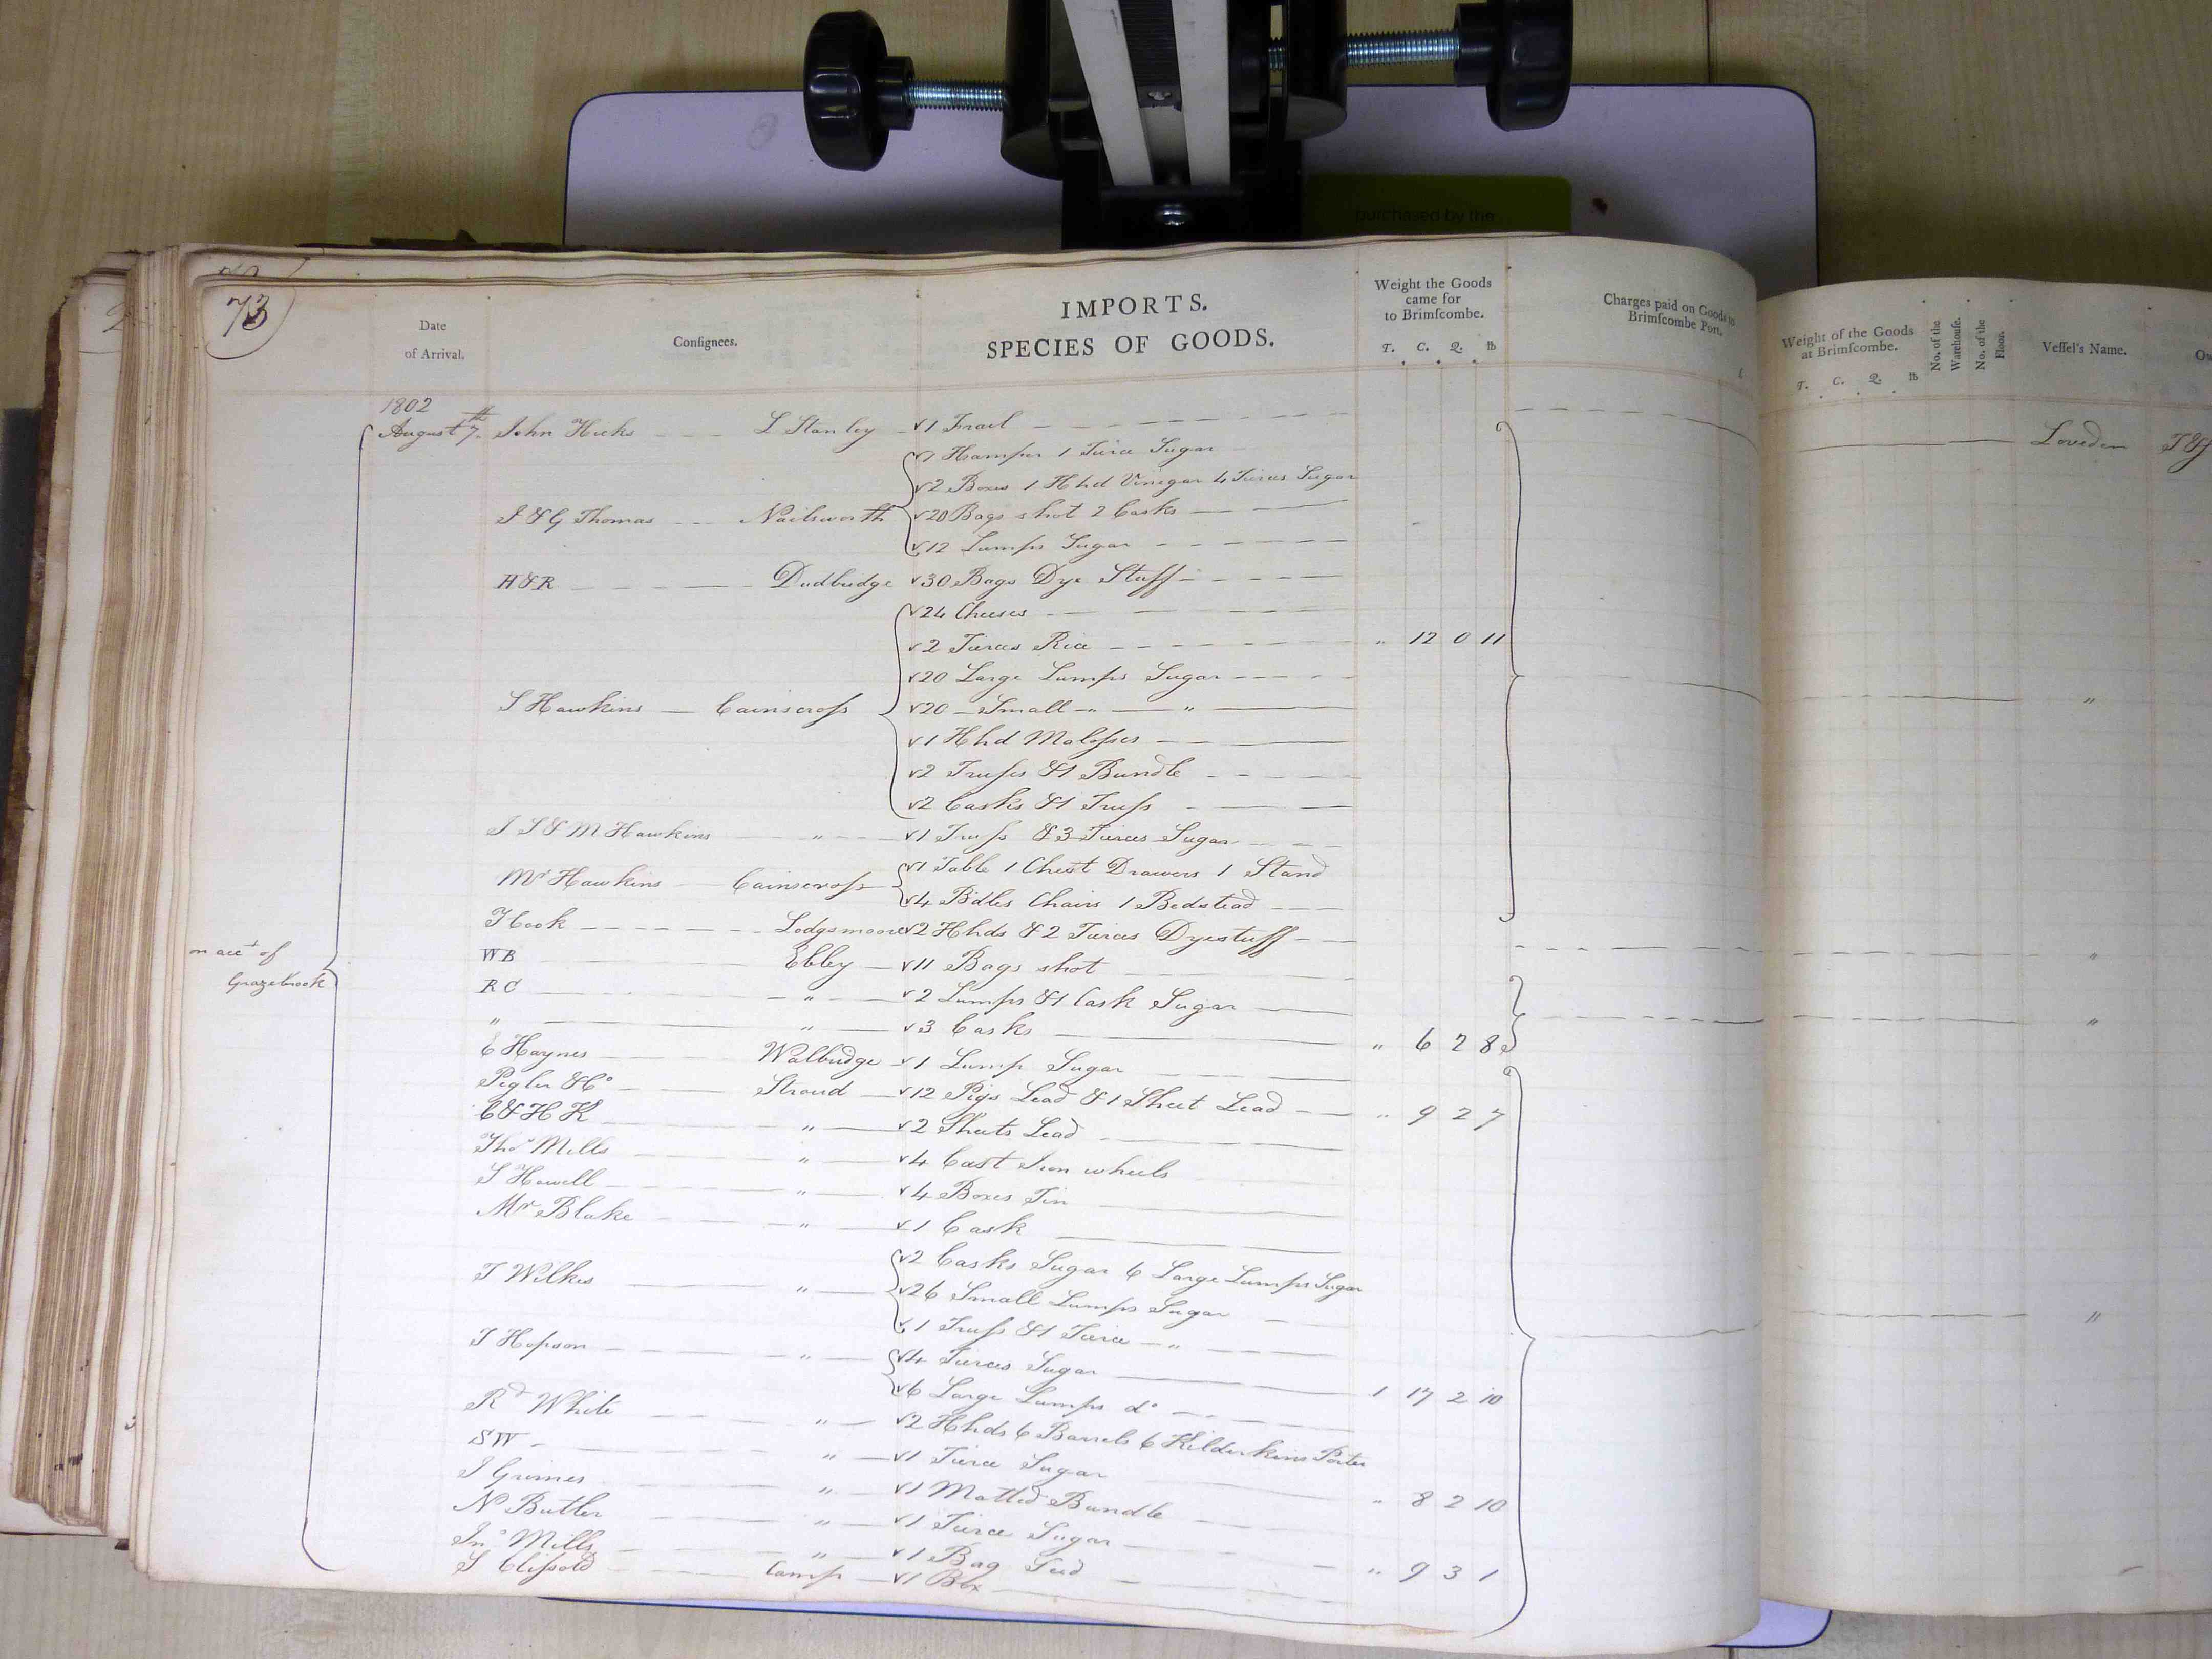 purchased by the
73
Date of Arrival. Consignees. IMPORTS. SPECIES OF GOODS. Weight the Goods came for to Brimscombe. T. C. Q. lb Charges paid on Goods to Brimscombe Port. Weight of the Goods at Brimscombe. T. C. Q. lb No. of the Warehouse. No. of the Floor. Vessel's Name.
1802
August 7th John Hicks L Stanley 1 Frail Loveden
1 Hamper 1 Tierce Sugar
2 Boxes 1 Hhd Vinegar 4 Tierces Sugar
J & G Thomas Nailsworth 20 Bags shot 2 Casks
12 Lumps Sugar
H&R Dudbridge 30 Bags Dye Stuff
24 Cheeses
2 Tierces Rice " 12 0 11
20 Large Lumps Sugar
S Hawkins Cainscross 20 Small " " "
1 Hhd Molasses
2 Trusses & 1 Bundle
2 Casks & 1 Truss
J S & M Hawkins " 1 Truss & 3 Tierces Sugar
Mr Hawkins Cainscross 1 Table 1 Chest Drawers 1 Stand
4 Bdles Chairs 1 Bedstead
T Cook Lodgsmoore 2 Hhds & 2 Tierces Dyestuff
on acct of Grazebrook
WB Ebley 11 Bags shot "
RC " 2 Lumps & 1 Cask Sugar
" " 3 Casks " 6 2 8 "
E Haynes Walbridge 1 Lump Sugar
Pegler & Co Stroud 12 Pigs Lead & 1 Sheet Lead " 9 2 7
C & H K " 2 Sheets Lead
Thos Mills " 4 Cast Iron wheels
S Howell " 4 Boxes Tin
Mr Blake " 1 Cask
2 Casks Sugar 6 Large Lumps Sugar
T Wilkes " 26 Small Lumps Sugar "
1 Truss & 1 Tierce "
T Hopson " 4 Tierces Sugar
6 Large Lumps do 1 17 2 10
Rd White " 2 Hhds 6 Barrels 6 Kilderkins Porter
SW " 1 Tierce Sugar
J Grimes " 1 Matted Bundle " 8 2 10
N Butler " 1 Tierce Sugar
Jno Mills " 1 Bag Seed
S Clissold Camp 1 Box " 9 3 1